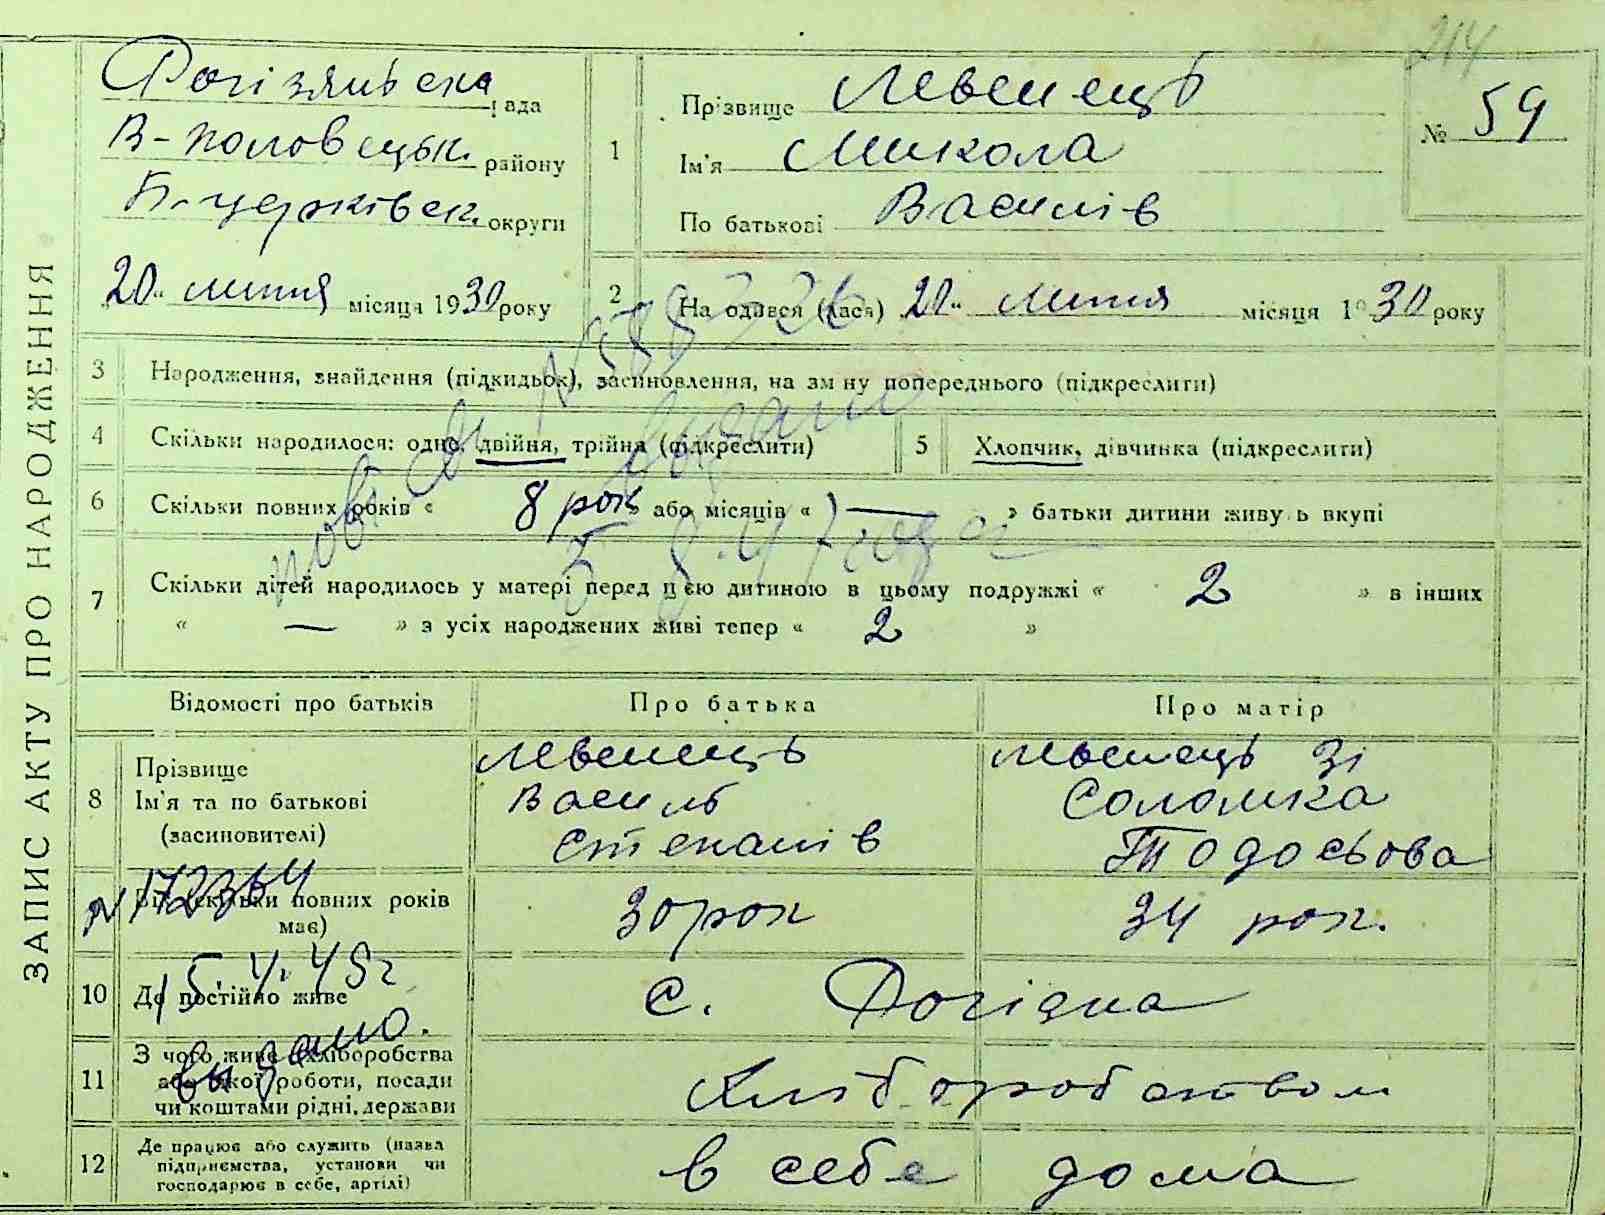 ЗАПИС АКТУ ПРО НАРОДЖЕННЯ
214
Рогізянська рада
В-Половецьк. району
Б.-церківськ. округи
20 " липня місяця 1930 року
1
Прізвище Левенець
Ім'я Микола
По батькові Василів
№ 59
2 На одився (лася) 20 " липня місяця 1930 року
3 Народження, знайдення (підкидьок), засиновлення, на зм ну попереднього (підкреслити)
4 Скільки народилося: одно, двійня, трійня (підкреслити)
5 Хлопчик, дівчинка (підкреслити)
6 Скільки повних років « 8 рок або місяців « — » батьки дитини живу ь вкупі
7 Скільки дітей народилось у матері перед цією дитиною в цьому подружжі « 2 » в інших
« — » з усіх народжених живі тепер « 2 »
Відомості про батьків Про батька Про матір
8 Прізвище
Ім'я та по батькові
(засиновителі)
Левенець
Василь
Степанів
Левенець зі
Соломка
Тодосьова
№ 172364
Вік (скільки повних років має)
30 рок
34 рок.
15. 4. 45 г
выдано.
10 Де постійно живе
с. Рогізна
11 З чого живе (хліборобства
або якої роботи, посади
чи коштами рідні, держави
Хліборобством
12 Де працює або служить (назва
підприємства, установи чи
господарює в себе, артілі)
в себе дома